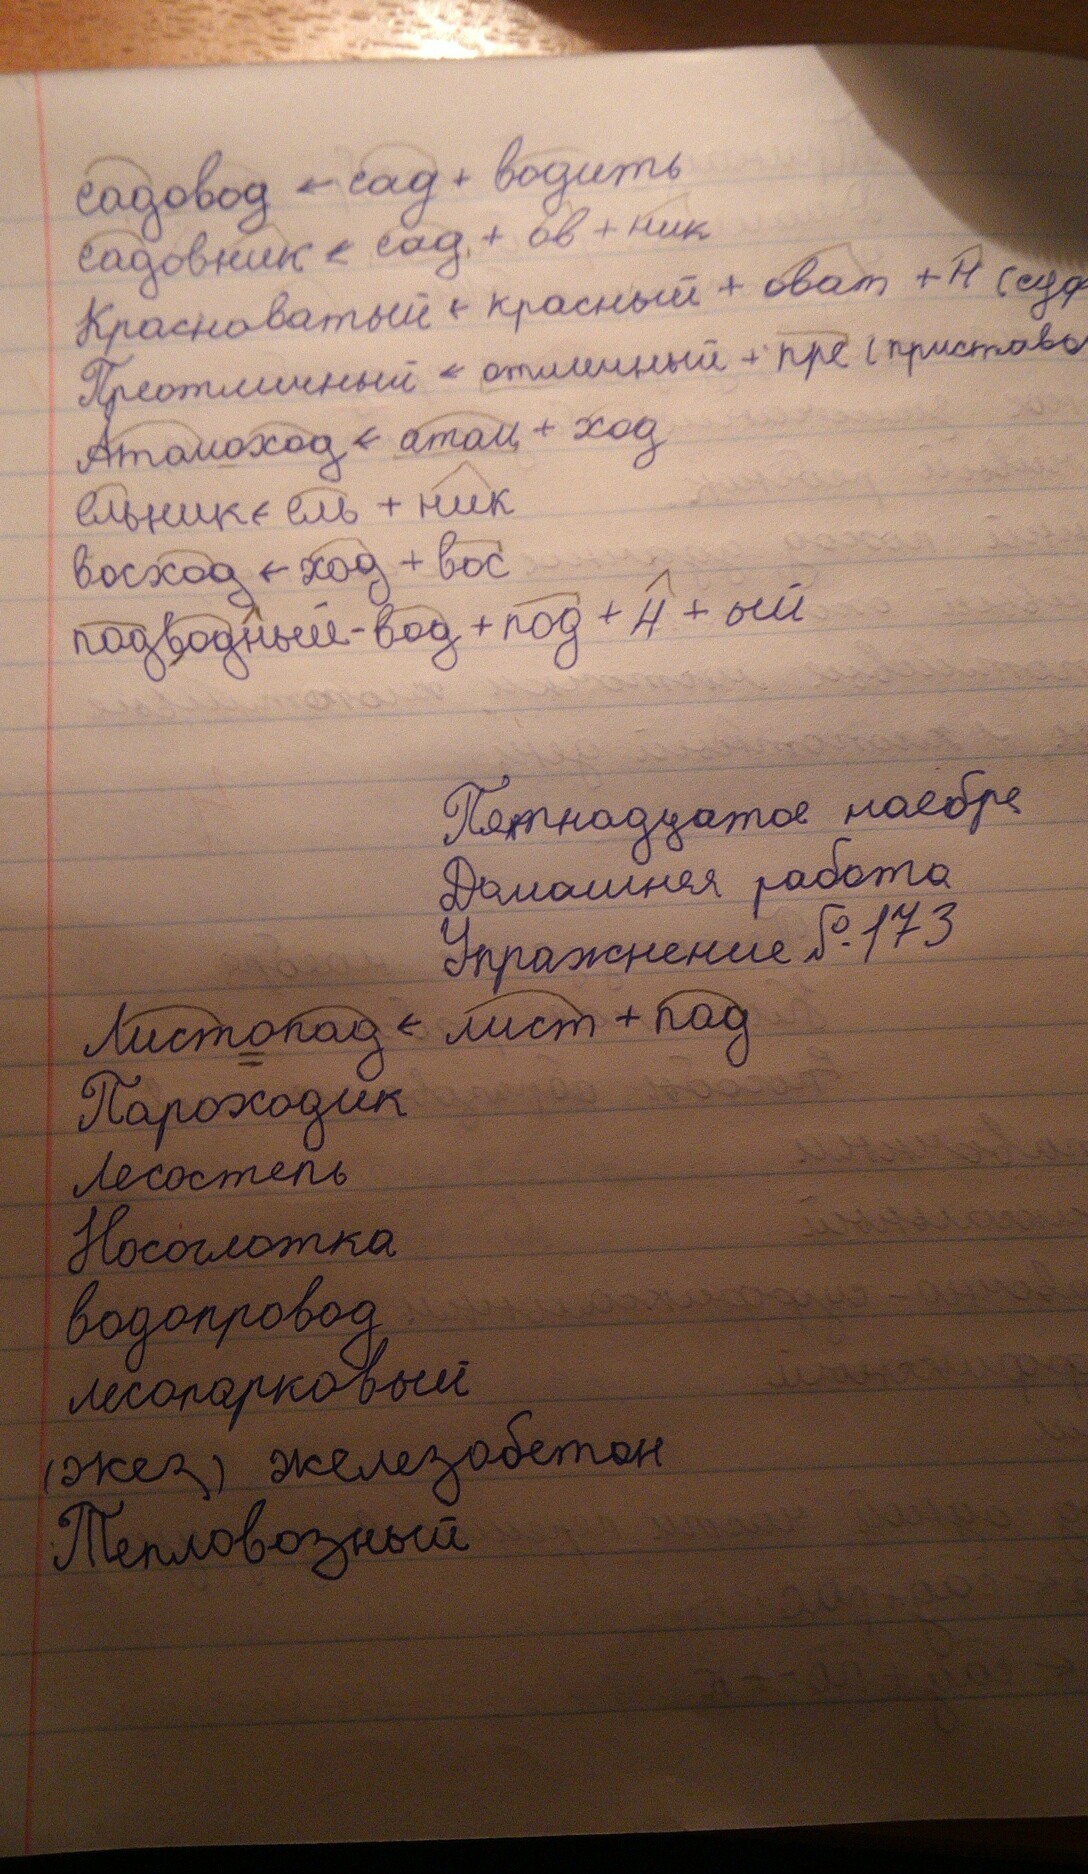 садовод ← сад + водить
садовник ← сад + ов + ник
Красноватый ← красный + оват + н (суф
Преотличный ← отличный + пре (приставо
Атомоход ← атом + ход
ельник ← ель + ник
восход ← ход + вос
подводный - вод + под + н + ый
Пятнадцатое ноября
Домашняя работа
Упражнение №173
Листопад ← лист + пад
Пароходик
Лесостепь
Носоглотка
водопровод
лесопарковый
(жез) железобетон
Тепловозный